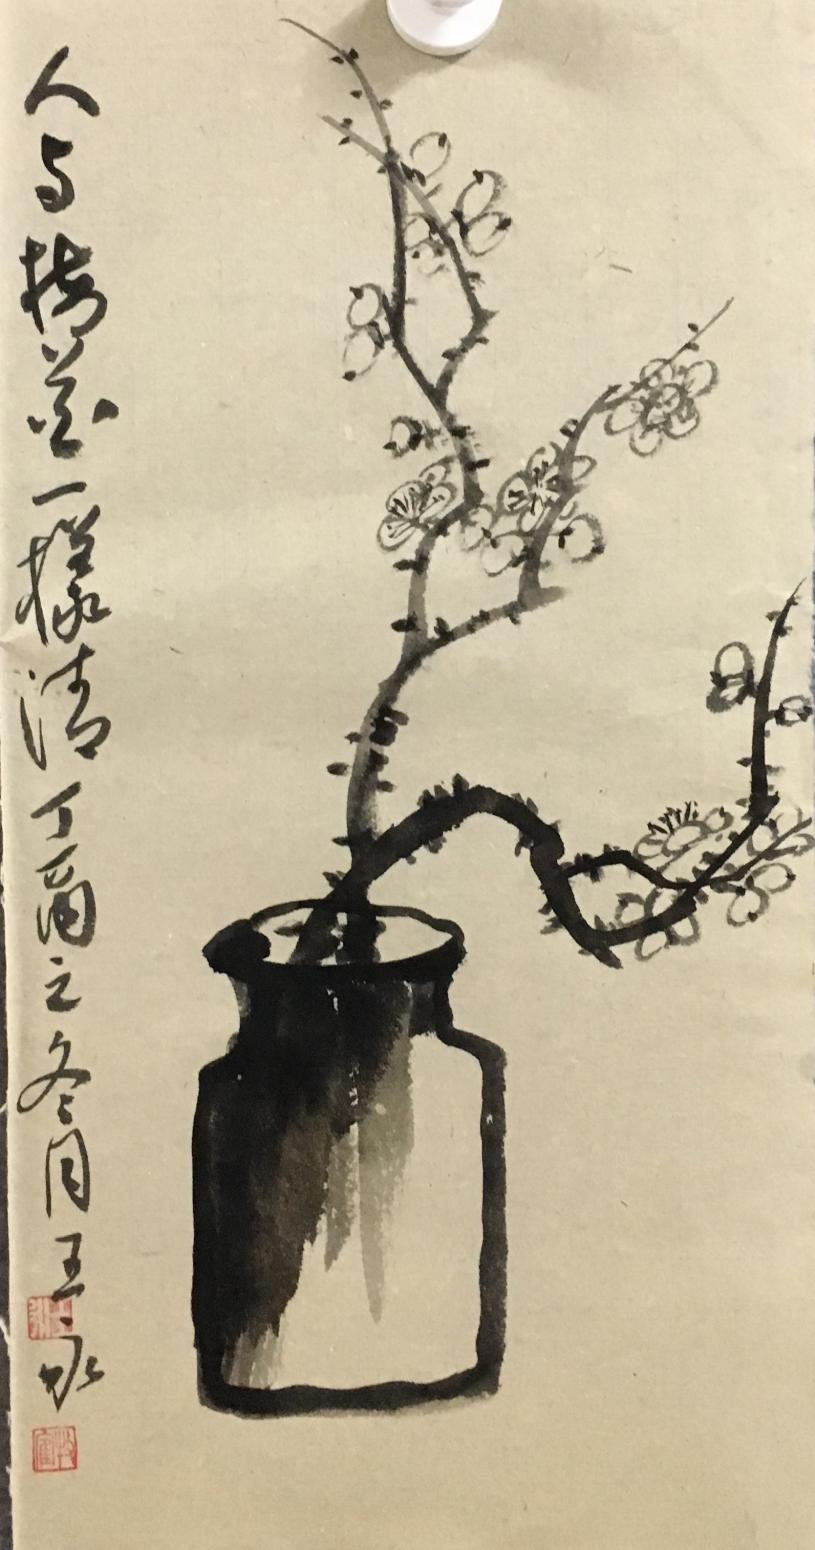 人与梅花一樣清丁酉之冬月王永